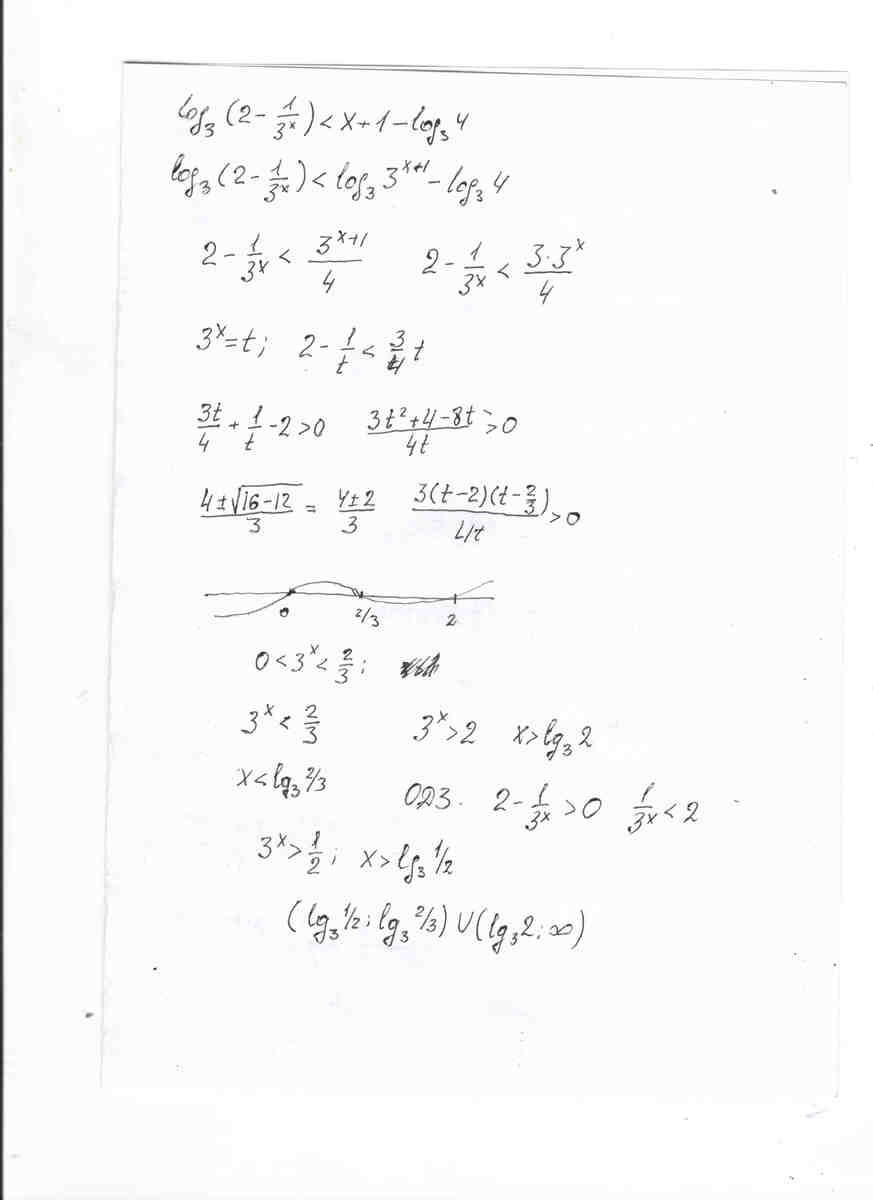 log₃(2 - 1/3ˣ) < x + 1 - log₃4
log₃(2 - 1/3ˣ) < log₃3ˣ⁺¹ - log₃4
2 - 1/3ˣ < 3ˣ⁺¹/4    2 - 1/3ˣ < 3·3ˣ/4
3ˣ = t;  2 - 1/t < 3/4 t
3t/4 + 1/t - 2 > 0    (3t² + 4 - 8t)/4t > 0
(4 ± √(16 - 12))/3 = (4 ± 2)/3    3(t - 2)(t - 2/3)/4t > 0
0    2/3    2
0 < 3ˣ < 2/3;
3ˣ < 2/3    3ˣ > 2    x > lg₃2
x < lg₃2/3    ОДЗ.  2 - 1/3ˣ > 0    1/3ˣ < 2
3ˣ > 1/2;  x > lg₃1/2
(lg₃1/2; lg₃2/3) ∪ (lg₃2; ∞)